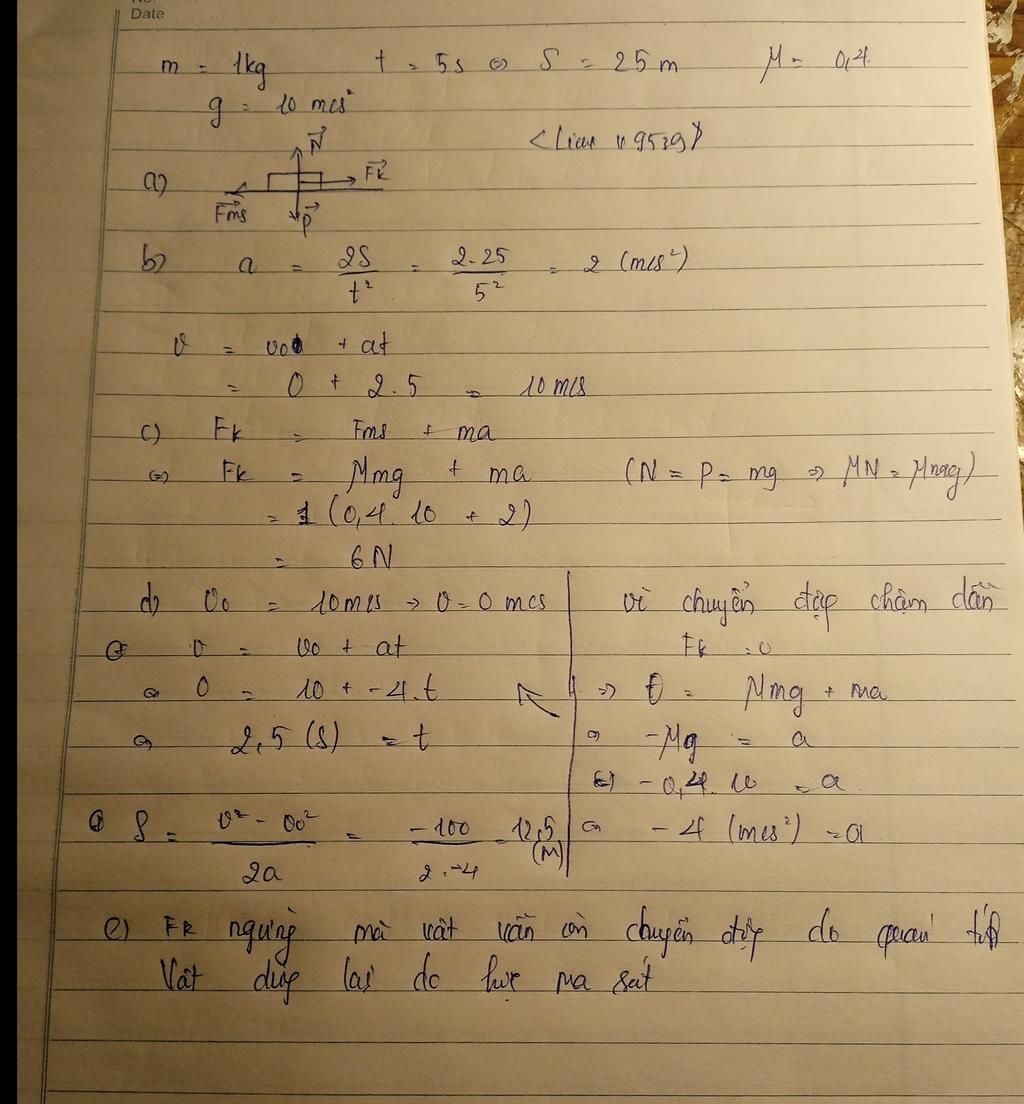 Date
m = 1kg t = 5s ⇔ S = 25m μ = 0,4.
g = 10 m/s²
a) N Fk Fms P
b) a = 2S/t² = 2.25/5² = 2 (m/s²)
v = v0 + at
= 0 + 2.5 = 10 m/s
c) Fk = Fms + ma
⇔ Fk = μmg + ma (N = P = mg ⇒ μN = μmg)
= 1 (0,4. 10 + 2)
= 6N
d) v0 = 10 m/s → v = 0 m/s
v = v0 + at
⇔ 0 = 10 + -4.t
⇔ 2,5 (s) = t
S = v² - v0²/2a = -100/2.-4 = 12,5 (m)
vì chuyển động chậm dần
Fk = 0
⇒ 0 = μmg + ma
⇔ -μg = a
⇔ -0,4. 10 = a
⇔ -4 (m/s²) = a
e) Fk ngừng mà vật vẫn còn chuyển động do quán tính
Vật dừng lại do lực ma sát